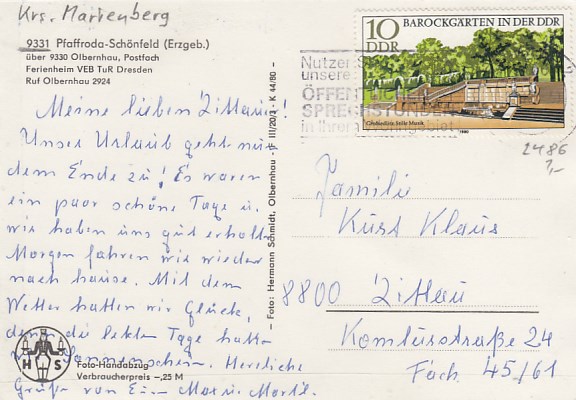 Krs. Marienberg
9331 Pfaffroda-Schönfeld (Erzgeb.)
über 9330 Olbernhau, Postfach
Ferienheim VEB TuR Dresden
Ruf Olbernhau 2924
Meine lieben Zittauer!
Unser Urlaub geht nun
dem Ende zu! Es waren
ein paar schöne Tage u.
wir haben uns gut erholt.
Morgen fahren wir wieder
nach hause. Mit dem
Wetter hatten wir Glück,
denn die letzten Tage hatten
wir Sonnenschein. Herzliche
Grüße von
H S
Foto-Handabzug
Verbraucherpreis -,25 M
Foto: Hermann Schmidt, Olbernhau - III/20/3 - K 44/80 -
10
DDR
BAROCKGÄRTEN IN DER DDR
Großsedlitz Stille Musik
1980
Nutzen S
unsere
ÖFFEN
SPRECHSTUNDEN
in Ihrem Wohngebiet
2486
1,-
Familie
Kurt Klaus
8800 Zittau
Komturstraße 24
Fach 45/61